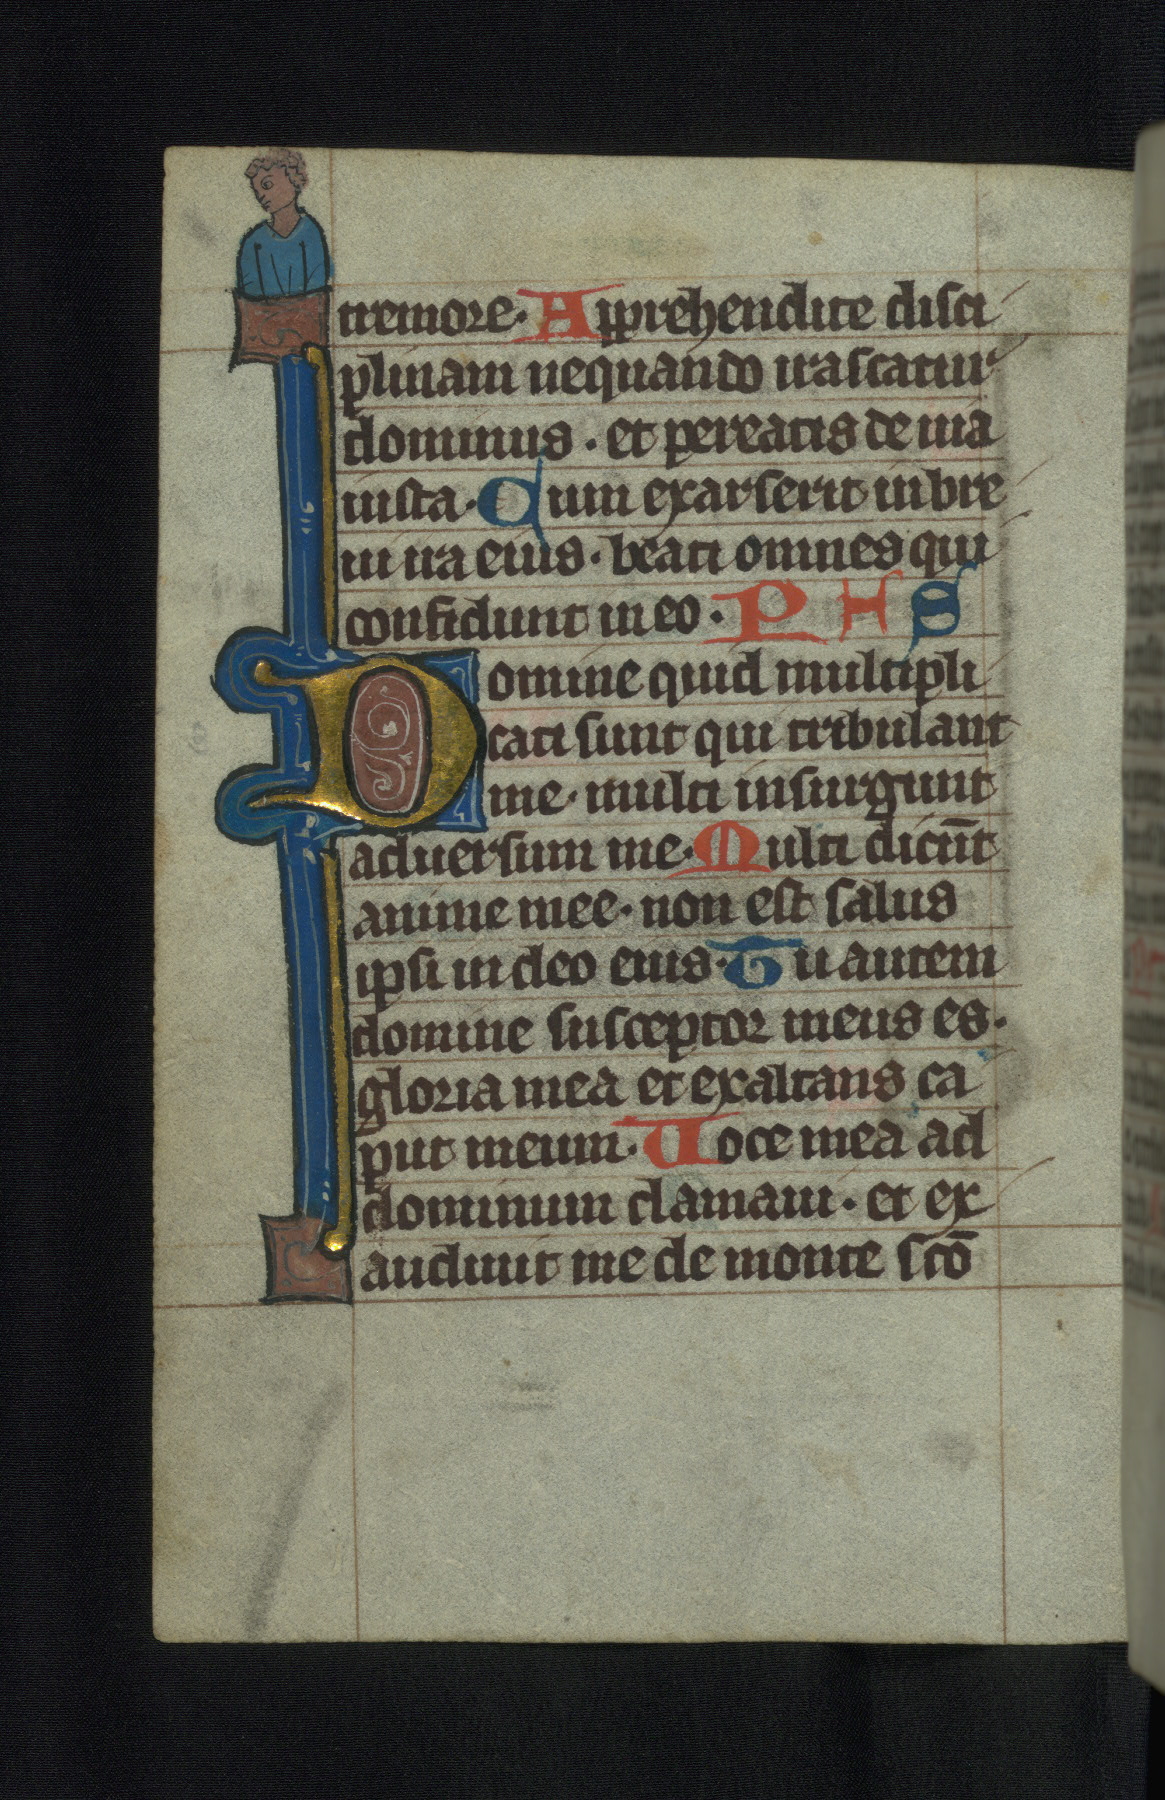 tremore. Apprehendite disci
plinam nequando irascatur
dominus. et pereatis de uia
iusta. Cum exarserit in bre
ui ira eius. beati omnes qui
confidunt in eo. P H S
Domine quid multipli
cati sunt qui tribulant
me. multi insurgunt
aduersum me. Multi dicūt
anime mee. non est salus
ipsi in deo eius. Tu autem
domine susceptor meus es.
gloria mea et exaltans ca
put meum. Uoce mea ad
dominum clamaui. et ex
audiuit me de monte scō